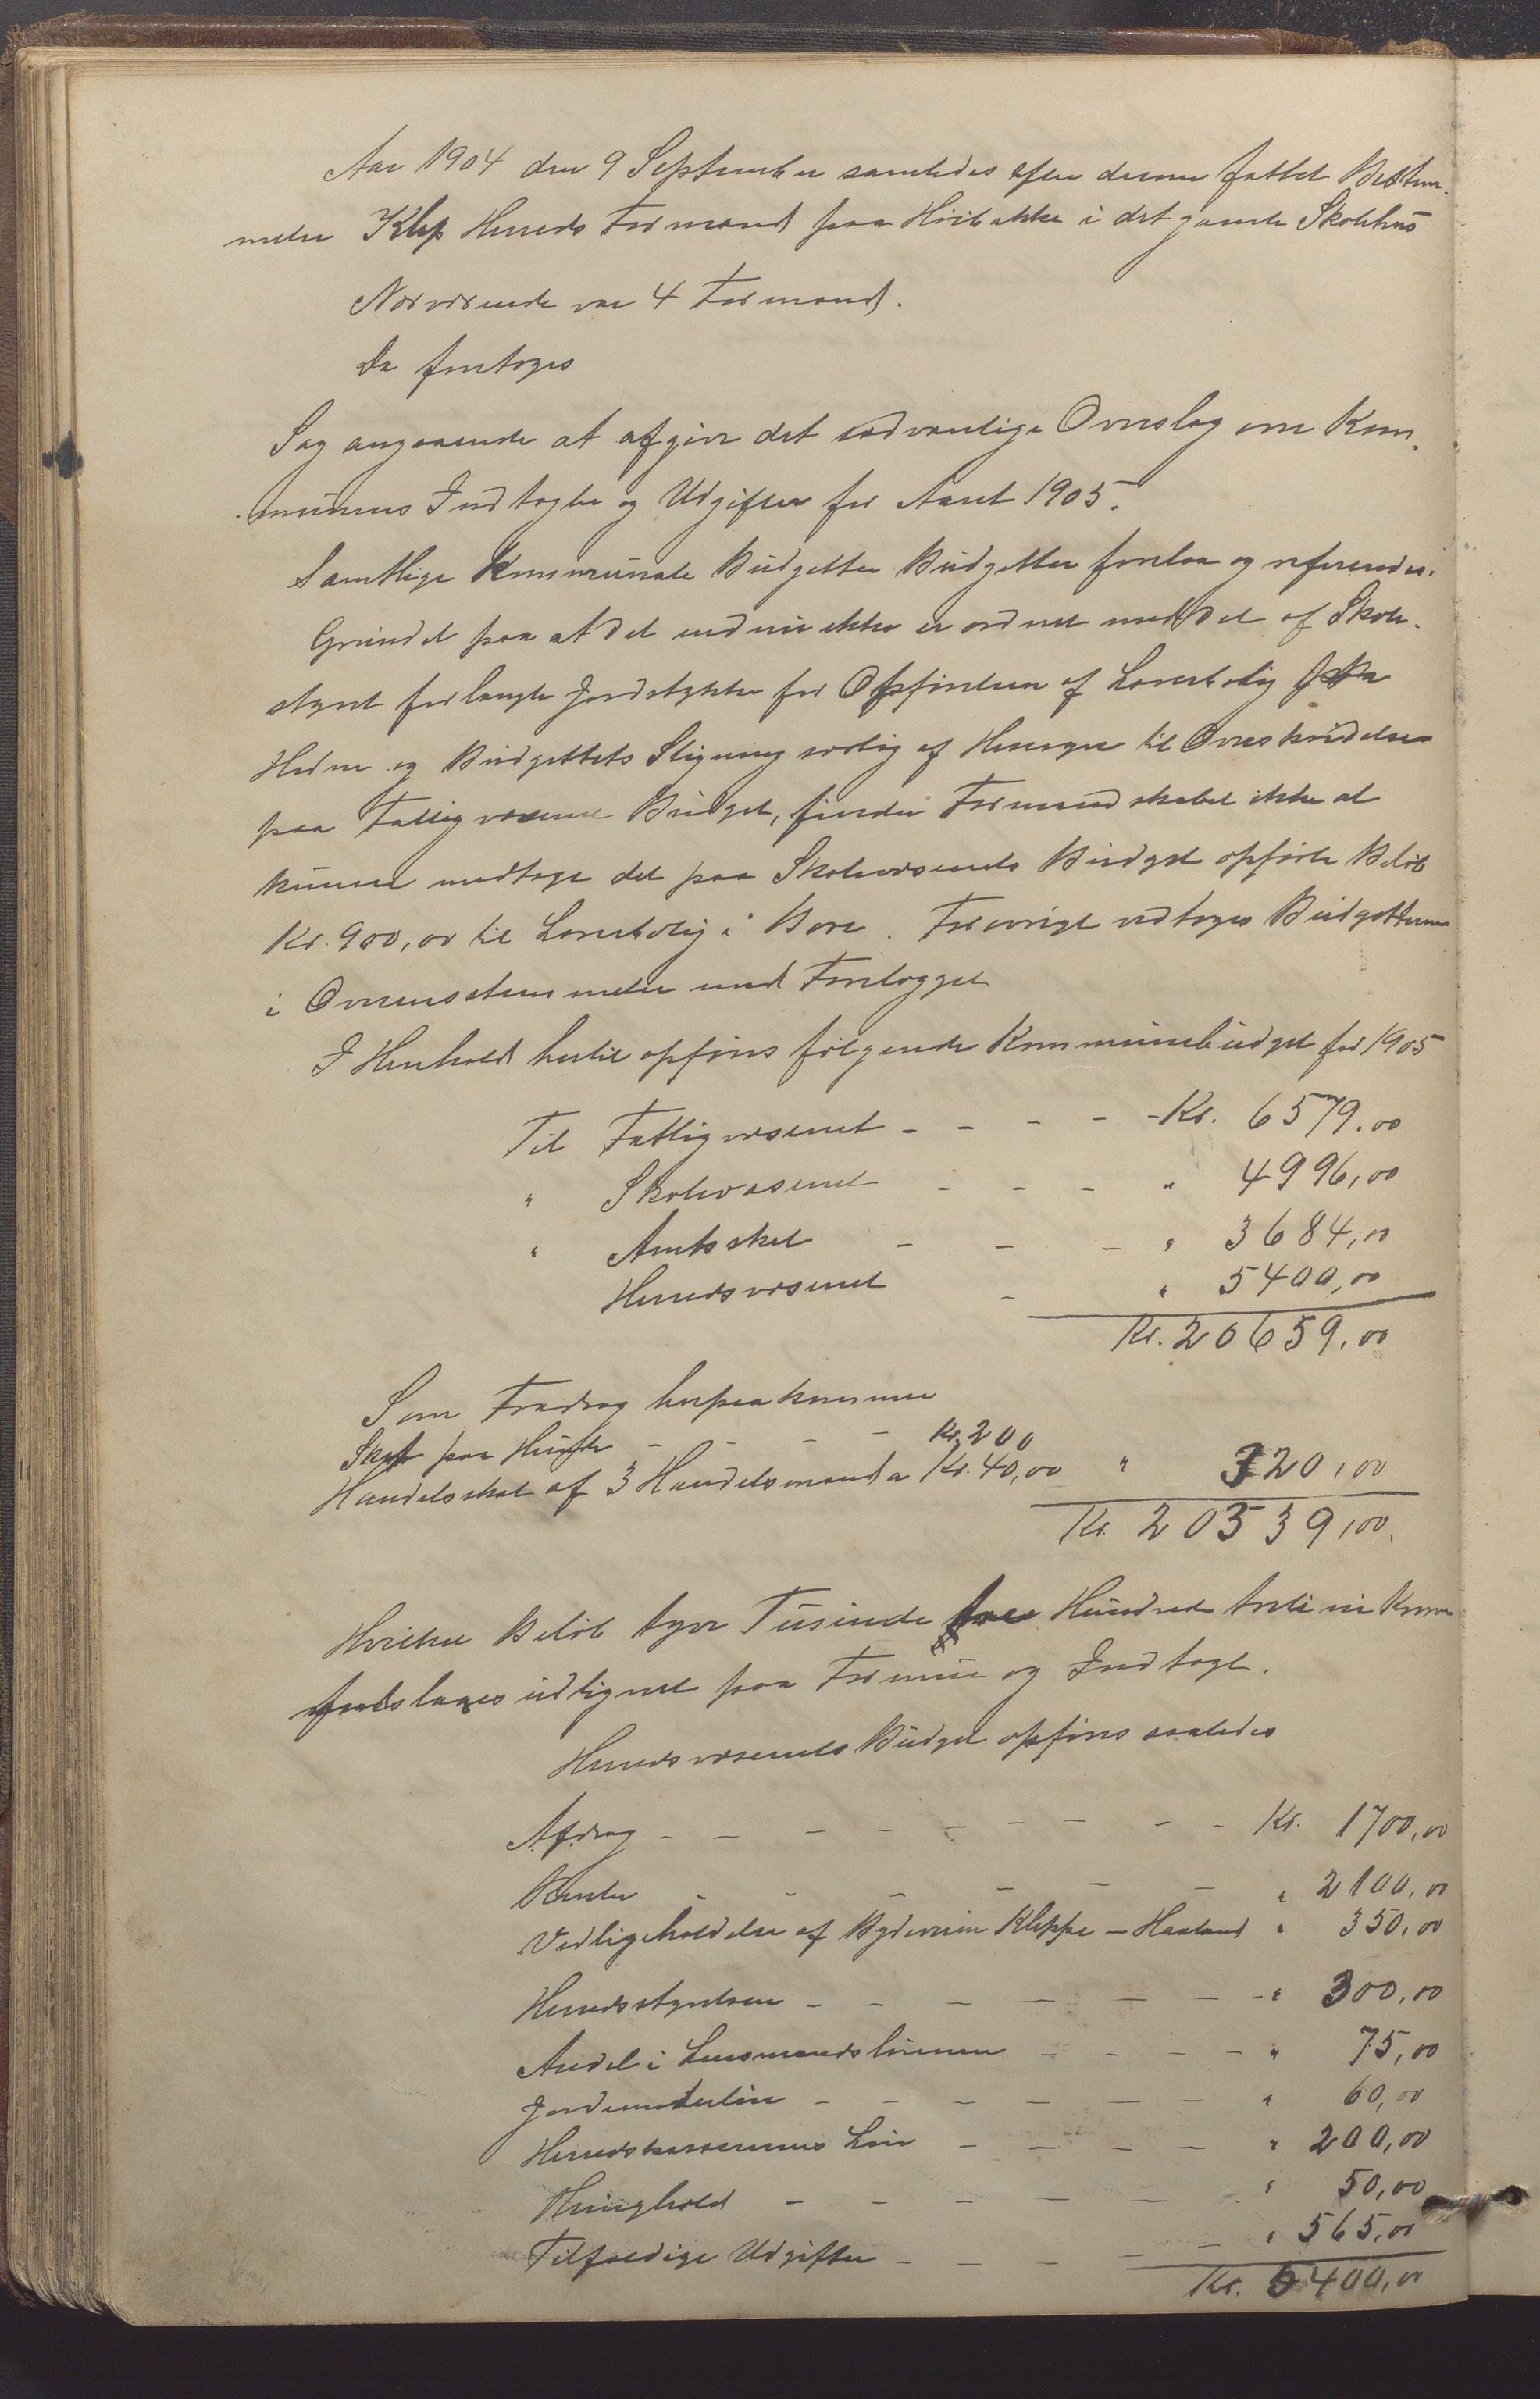 Aar 1904 den 9 September samledes efter derom fattet Bestem-
melse Klep Herreds Formænd paa Hørbakke i det gamle Skolehus
Nærværende var 4 Formænd.
Da foretoges
Sag angaaende at afgive det sædvanlige Overslag om Kom-
munens Indtægter og Udgifter for Aaret 1905.
Samtlige Kommunale Budgetter Budgetter forelaa og refereredes.
Grundet paa at det endnu ikke er ordnet med det af Skole-
styret forlangte Jordstykke for Opførelsen af Lærerbolig
og Budgettets Stigning særlig af Hensyn til Overskridelser
paa Fattigvæsenets Budget, finder Formandskabet ikke at
kunne medtage det paa Skolevæsenets Budget opførte Beløb
Kr. 900,00 til Lærerbolig i Bore. Forøvrigt vedtoges Budgetterne
i Overensstemmelse med Forelægget
I Henhold hertil opføres følgende Kommunebudget for 1905
Til Fattigvæsenet - - - - - Kr. 6579.00
" Skolevæsenet - - - " 4996,00
" Amtsskat - - - " 3684,00
Herredsvæsenet - " 5400,00
Kr. 20659,00
Som Fradrag herpaa kommer
Skat paa Hunde - - - - Kr. 200
Handelsskat af 3 Handelsmænd a Kr. 40,00 " 320,00
Kr. 20339,00.
Hvilket Beløb tyve Tusinde tre Hundrede treti ni Kroner
foreslaaes udlignet paa Formue og Indtægt.
Herredsvæsenets Budget opføres saaledes
Afdrag - - - - - - - - - Kr. 1700,00
Renter - - - - - - " 2100,00
Vedligeholdelse af Bydeveien Kleppe - Haaland " 350,00
Herredsstyrelsen - - - - - - - " 300,00
Andel i Lensmandslønnen - - - - " 75,00
Jordemoderløn - - - - - - " 60,00
Herredskassererens Løn - - - - " 200,00
Ringhold - - - - - " 50,00
Tilfældige Udgifter - - - - - " 565,00
Kr. 5400,00